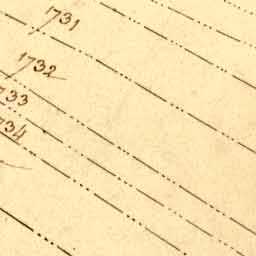 1731
1732
1733
1734